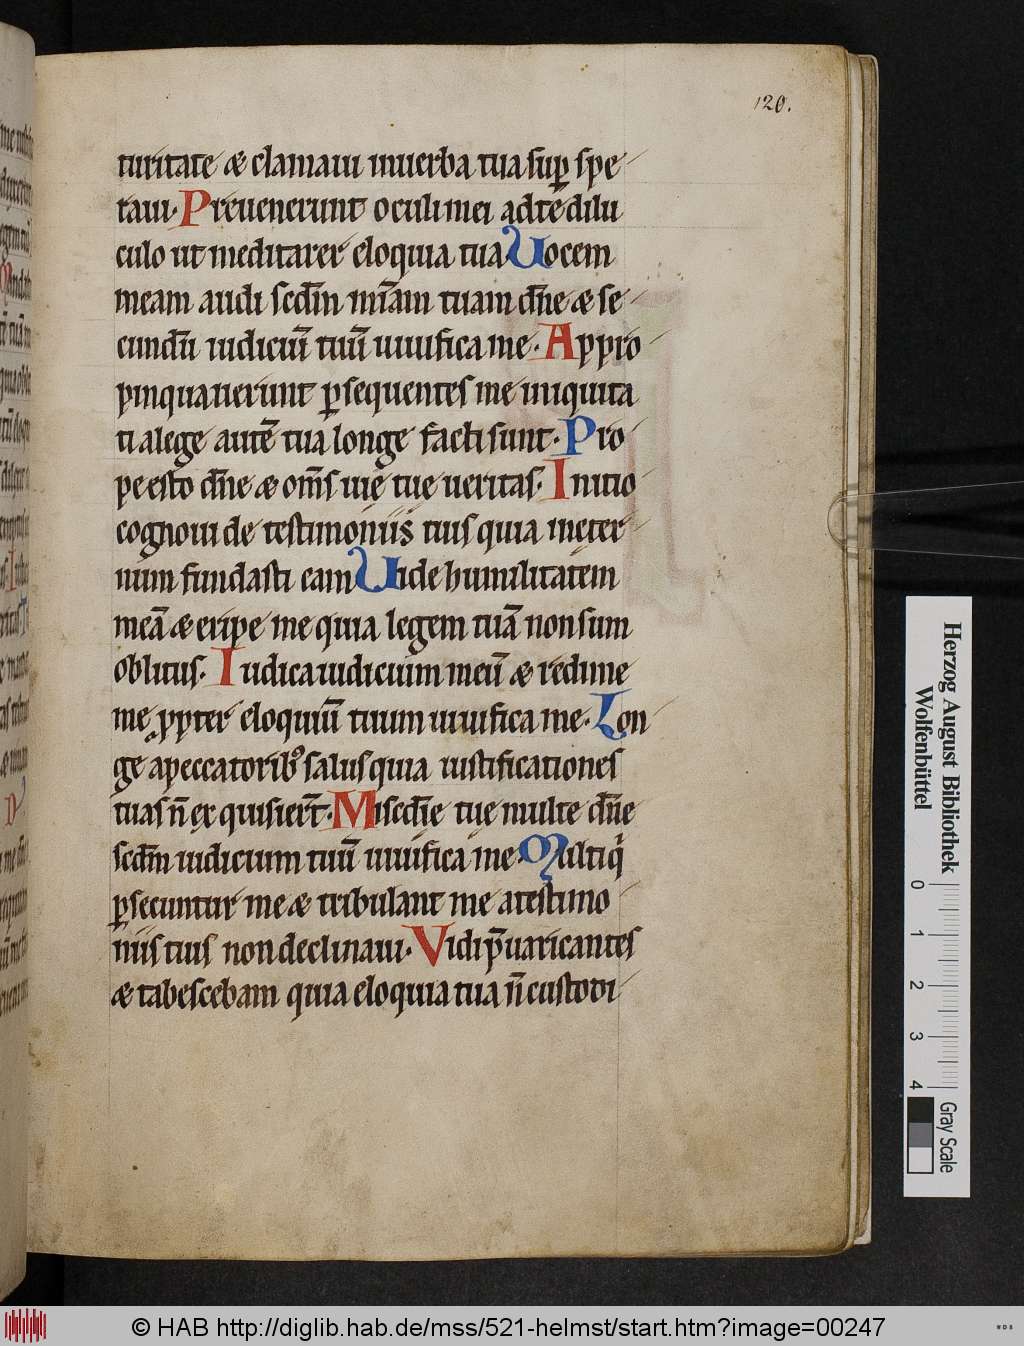 120.
turitate & clamaui inuerba tua sup̄ spe
raui. Preuenerunt oculi mei ad te dilu
culo ut meditarer eloquia tua. Uocem
meam audi scdm̄ mīam tuam dn̄e & se
cundū iudiciū tuū uiuifica me. Appro
pinquauerunt p̄sequentes me iniquita
ti alege autē tua longe facti sunt. Pro
pe esto dn̄e & om̄s uię tuę ueritas. Initio
cognoui de testimoniis tuis quia inęter
num fundasti eam. Uide humilitatem
meā & eripe me quia legem tuā non sum
oblitus. Iudica iudicium meū & redime
me ꝓpter eloquiū tuum uiuifica me. Lon
ge apeccatorib; salus quia iustificationes
tuas n̄ exquisier̄t. Miscdīę tuę multe dn̄e
scdm̄ iudicium tuū uiuifica me. Multi q̄
p̄secuntur me & tribulant me atestimo
niis tuis non declinaui. Vidi p̄uaricantes
& tabescebam quia eloquia tua n̄ custodi
Herzog August Bibliothek
Wolfenbüttel
0 1 2 3 4
Gray Scale
© HAB http://diglib.hab.de/mss/521-helmst/start.htm?image=00247